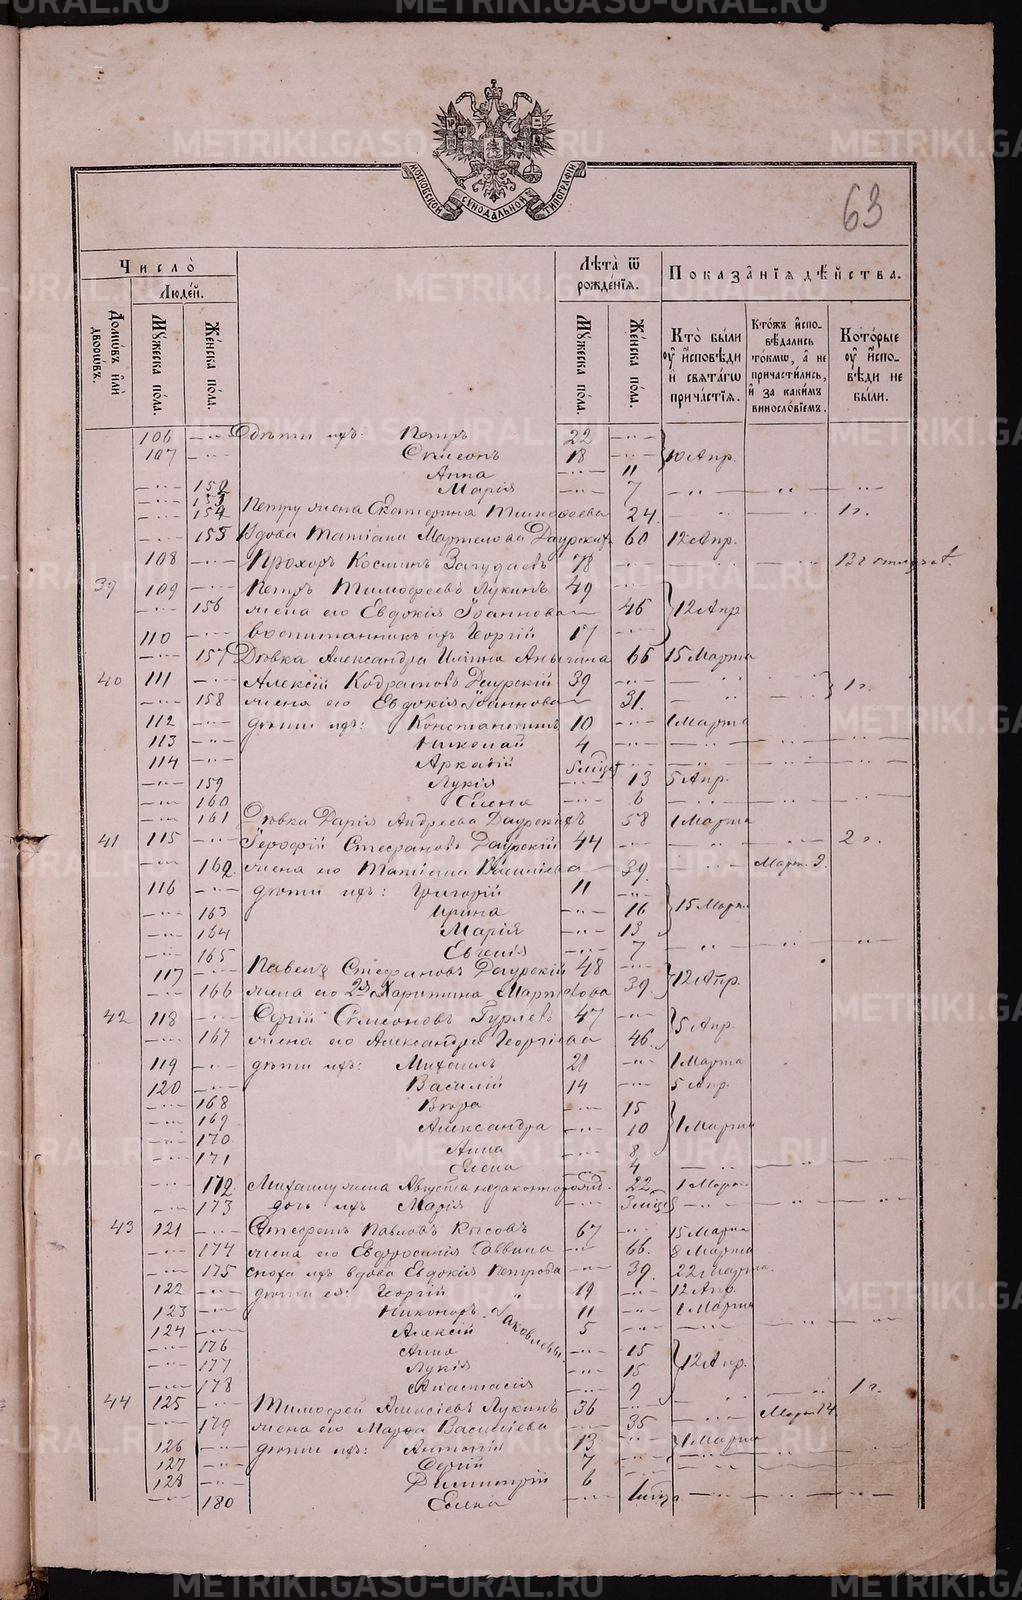 METRIKI.GASO-URAL.RU
МОСКОВСКОЙ СѴНОДАЛЬНОЙ ТИПОГРАФІИ
63
Число̀
Люде́й.
Домѡ́въ и҆лѝ дворѡ́въ.
Мꙋ́жеска по́ла.
Же́нска по́ла.
Лѣ́та ѿ рожде́нїя.
Мꙋ́жеска по́ла.
Же́нска по́ла.
Показа́нїя дѣ́йства.
Кто̀ бы́ли ᲂу҆ и҆́сповѣди и҆ свѧта́гѡ прича́стїѧ.
Кто́жъ и҆сповѣ́дались то́кмѡ, а҆ не причасти́лись, и҆ за каки́мъ виносло́вїемъ.
Кото́рые ᲂу҆ и҆́сповѣди не бы́ли.
106 Дѣти ихъ: Петръ 22
107 Симеонъ 18 10 Апр.
Анна 11
152 Марія 7
153
154 Петру жена Екатерина Тимофеева 24 1 г.
155 Вдова Татіана Даурских 60 12 Апр.
108 Прохоръ Космин 78
39 109 Петръ Тимофеевъ Лукинъ 49
156 жена его Евдокія Іоаннова 46 12 Апр
110 воспитанникъ ихъ Георгій 17
157 Дѣвка Александра 66 15 Марта
40 111 Алексій Кодратовъ Даурскій 39 1 г.
158 жена его Евдокія Іоаннова 31.
112 дѣти ихъ: Константинъ 10 1 Марта
113 Николай 4
114 Аркадій
159 Лукія 13 5 Апр.
160 Елена 6
161 Дѣвка Дарія Андреева Даурскихъ 58 1 Марта
41 115 Іерофій Стефановъ Даурскій 44 2 г.
162 жена его Татіана Василіева 39.
116 дѣти ихъ: Григорій 11
163 Ирина 16 15 Марта
164 Марія 13
165 Евгенія 7
117 Павелъ Стефановъ Даурскій 48
166 жена его Харитина 39. 12 Апр.
42 118 Сергій Симеоновъ Гуляевъ 47
167 жена его Александра Георгіева 46. 5 Апр.
119 дѣти ихъ: Михаилъ 21 1 Марта
120 Василій 14 5 Апр.
168 Вѣра 15
169 Александра 10 1 Марта
170 Анна 8
171 Елена 4
172 Михаилу жена Августа 22 1 Мар
173 дочь ихъ Марія
43 121 Стефанъ Павловъ Кысовъ 67 15 Марта
174 жена его Евфросинія Саввина 66. 8 Марта
175 сноха ихъ вдова Евдокія Петрова 39. 22 Марта.
122 дѣти ея: Георгій 19 12 Апр.
123 Никоноръ 11 1 Марта
124 Алексій 5
Яковлевы.
176 Анна 15
177 Лукія 15 12 Апр.
178 Анастасія 9
44 125 Тимофей Алексіевъ Лукинъ 36 1 г.
179 жена его Марѳа Василіева 35 Март 14
126 дѣти ихъ: Антоній 13 1 Марта
127 Сергій 7
128 Димитрій 6
180 Елена